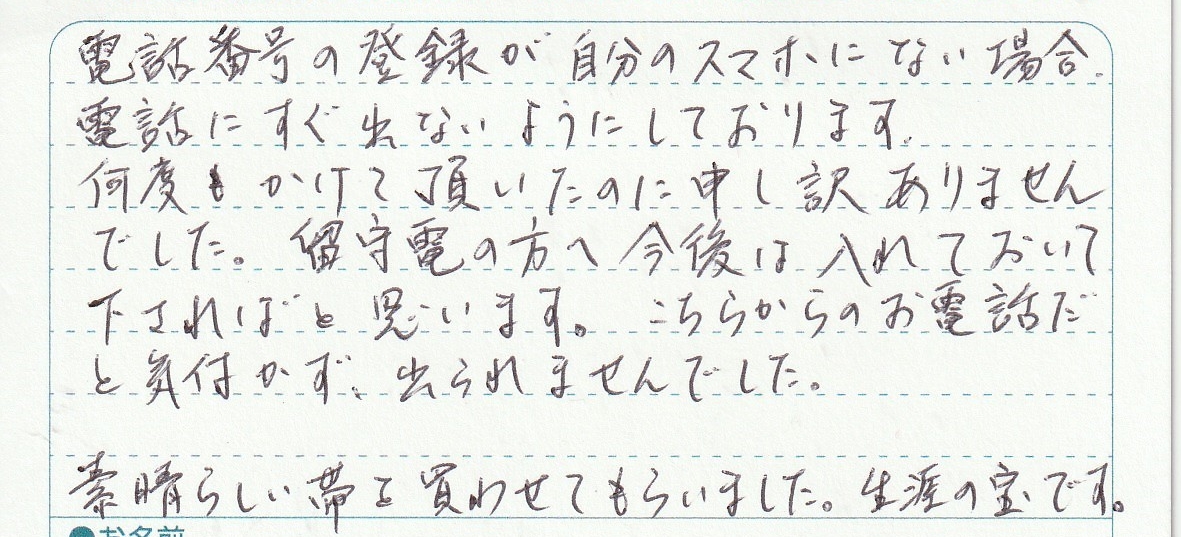 電話番号の登録が自分のスマホにない場合、
電話にすぐ出ないようにしております。
何度もかけて頂いたのに申し訳ありません
でした。留守電の方へ今後は入れておいて
下さればと思います。こちらからのお電話だ
と気付かず、出られませんでした。
素晴らしい帯を買わせてもらいました。生涯の宝です。
●お名前